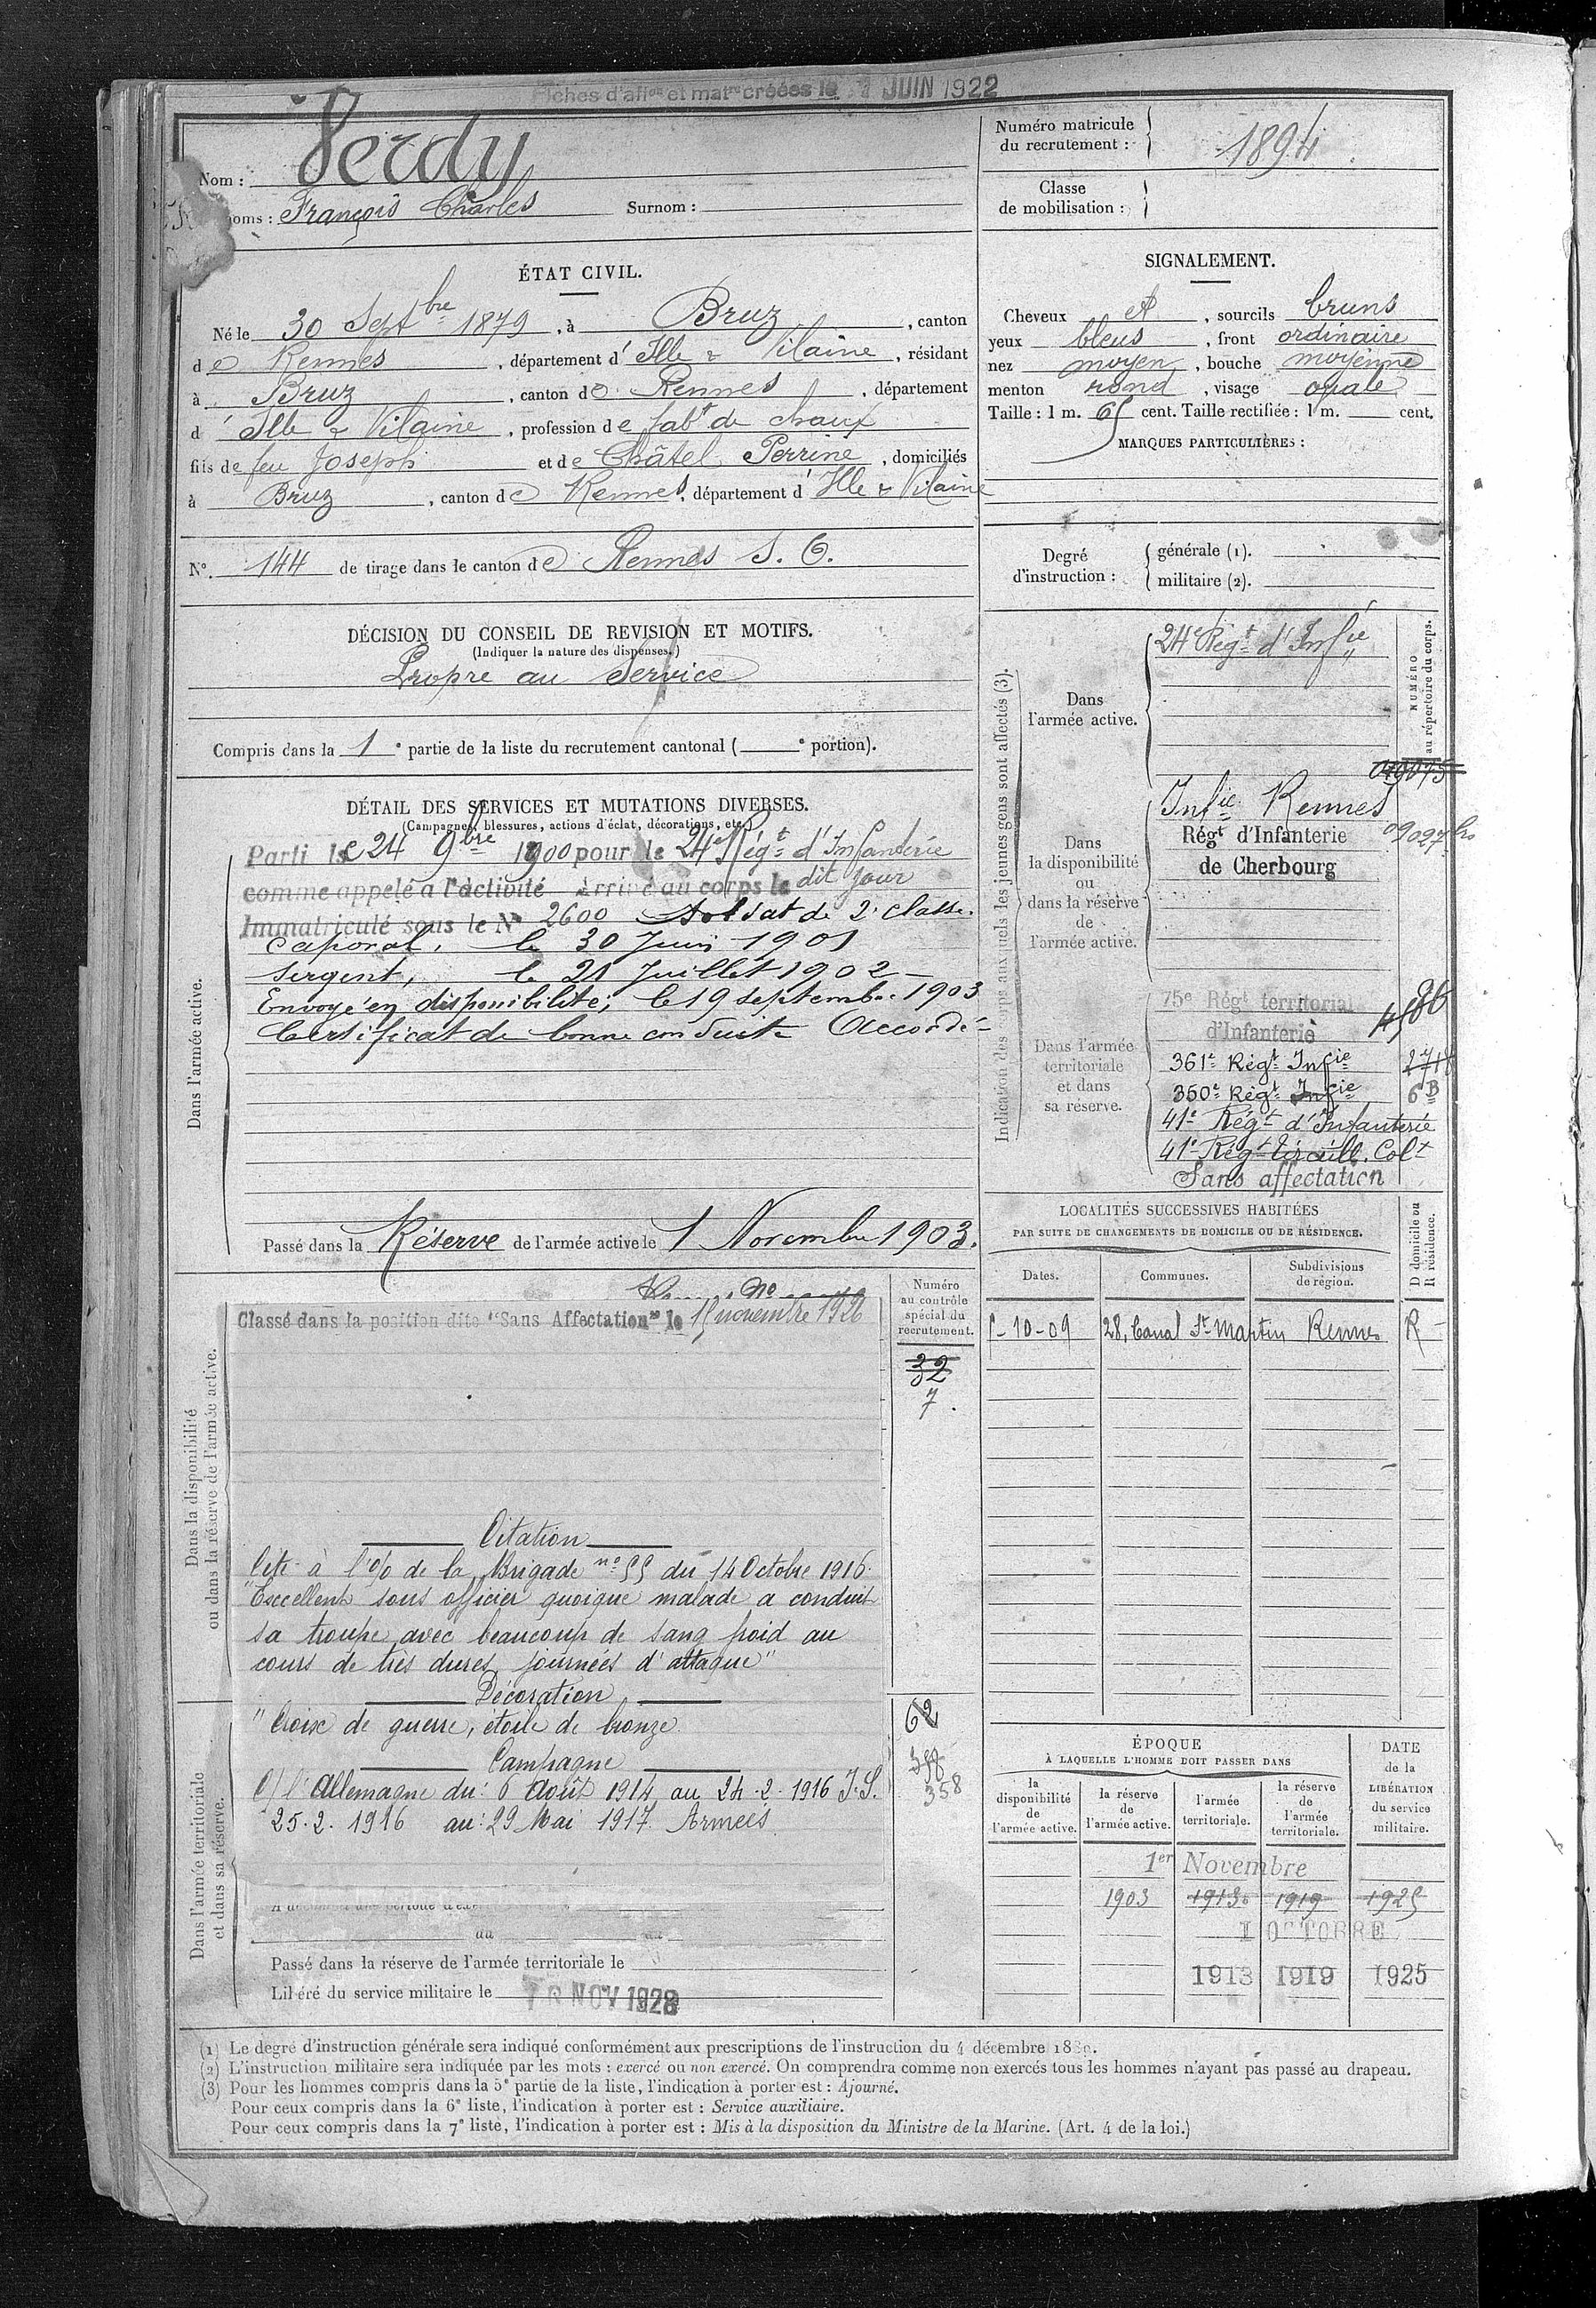 Fiches d'affon et matre créées le 7 JUIN 1922
Nom : Verdy
noms : François Charles Surnom :
Numéro matricule du recrutement : 1894
Classe de mobilisation :
ÉTAT CIVIL.
Né le 30 Septbre 1879, à Bruz, canton
de Rennes, département d'Ille & Vilaine, résidant
à Bruz, canton de Rennes, département
d'Ille & Vilaine, profession de fabt de chaux
fils de feu Joseph et de Châtel Perrine, domiciliés
à Bruz, canton de Rennes, département d'Ille & Vilaine
N°. 144 de tirage dans le canton de Rennes S. O.
SIGNALEMENT.
Cheveux et, sourcils bruns
yeux bleus, front ordinaire
nez moyen, bouche moyenne
menton rond, visage ovale
Taille : 1 m. 65 cent. Taille rectifiée : 1 m. cent.
MARQUES PARTICULIÈRES :
Degré d'instruction : générale (1).
militaire (2).
DÉCISION DU CONSEIL DE REVISION ET MOTIFS.
(Indiquer la nature des dispenses.)
Propre au Service
Compris dans la 1e partie de la liste du recrutement cantonal ( e portion).
DÉTAIL DES SERVICES ET MUTATIONS DIVERSES.
(Campagnes, blessures, actions d'éclat, décorations, etc.)
Dans l'armée active.
Parti le 24 9bre 1900 pour le 24e Régt d'Infanterie
comme appelé à l'activité Arrivé au corps le dit jour
Immatriculé sous le N° 2600 Soldat de 2e classe.
Caporal, le 30 Juin 1901
Sergent, le 21 Juillet 1902
Envoyé en disponibilité, le 19 septembre 1903
Certificat de bonne conduite Accordé
Passé dans la Réserve de l'armée active le 1 Novembre 1903.
Indication des corps auxquels les jeunes gens sont affectés (3).
NUMÉRO au répertoire du corps.
Dans l'armée active.
24e Régt d'Infie
Dans la disponibilité ou dans la réserve de l'armée active.
Infie Rennes
Régt d'Infanterie
de Cherbourg
Dans l'armée territoriale et dans sa réserve.
75e Régt territorial
d'Infanterie
361e Régt Infie
350e Régt Infie 6B
41e Régt d'Infanterie
41e Régt tiraill. Colx
Sans affectation
LOCALITÉS SUCCESSIVES HABITÉES
PAR SUITE DE CHANGEMENTS DE DOMICILE OU DE RÉSIDENCE.
Dates. Communes. Subdivisions de région. D domicile ou R résidence.
28, Canal St Martin Rennes R
Dans la disponibilité
ou dans la réserve de l'armée active.
Numéro au contrôle spécial du recrutement.
32
7
Classé dans la position dite "Sans Affectation" le 15 novembre 1926
Citation
Cité à l'o/o de la Brigade n° 55 du 14 Octobre 1916.
"Excellent sous officier quoique malade a conduit
sa troupe avec beaucoup de sang froid au
cours de très dures journées d'attaque"
Décoration
"Croix de guerre, étoile de bronze
Campagne
C/ l'Allemagne du : 6 Août 1914 au 24-2-1916 I.S.
25.2.1916 au : 29 Mai 1917. Armées
62
358
Dans l'armée territoriale
et dans sa réserve.
Passé dans la réserve de l'armée territoriale le
Libéré du service militaire le NOV 1928
ÉPOQUE
À LAQUELLE L'HOMME DOIT PASSER DANS
la disponibilité de l'armée active.
la réserve de l'armée active.
l'armée territoriale.
la réserve de l'armée territoriale.
DATE de la LIBÉRATION du service militaire.
1er Novembre
1903 1913 1919 1925
1 OCTOBRE
1913 1919 1925
(1) Le degré d'instruction générale sera indiqué conformément aux prescriptions de l'instruction du 4 décembre
(2) L'instruction militaire sera indiquée par les mots : exercé ou non exercé. On comprendra comme non exercés tous les hommes n'ayant pas passé au drapeau.
(3) Pour les hommes compris dans la 5e partie de la liste, l'indication à porter est : Ajourné.
Pour ceux compris dans la 6e liste, l'indication à porter est : Service auxiliaire.
Pour ceux compris dans la 7e liste, l'indication à porter est : Mis à la disposition du Ministre de la Marine. (Art. 4 de la loi.)